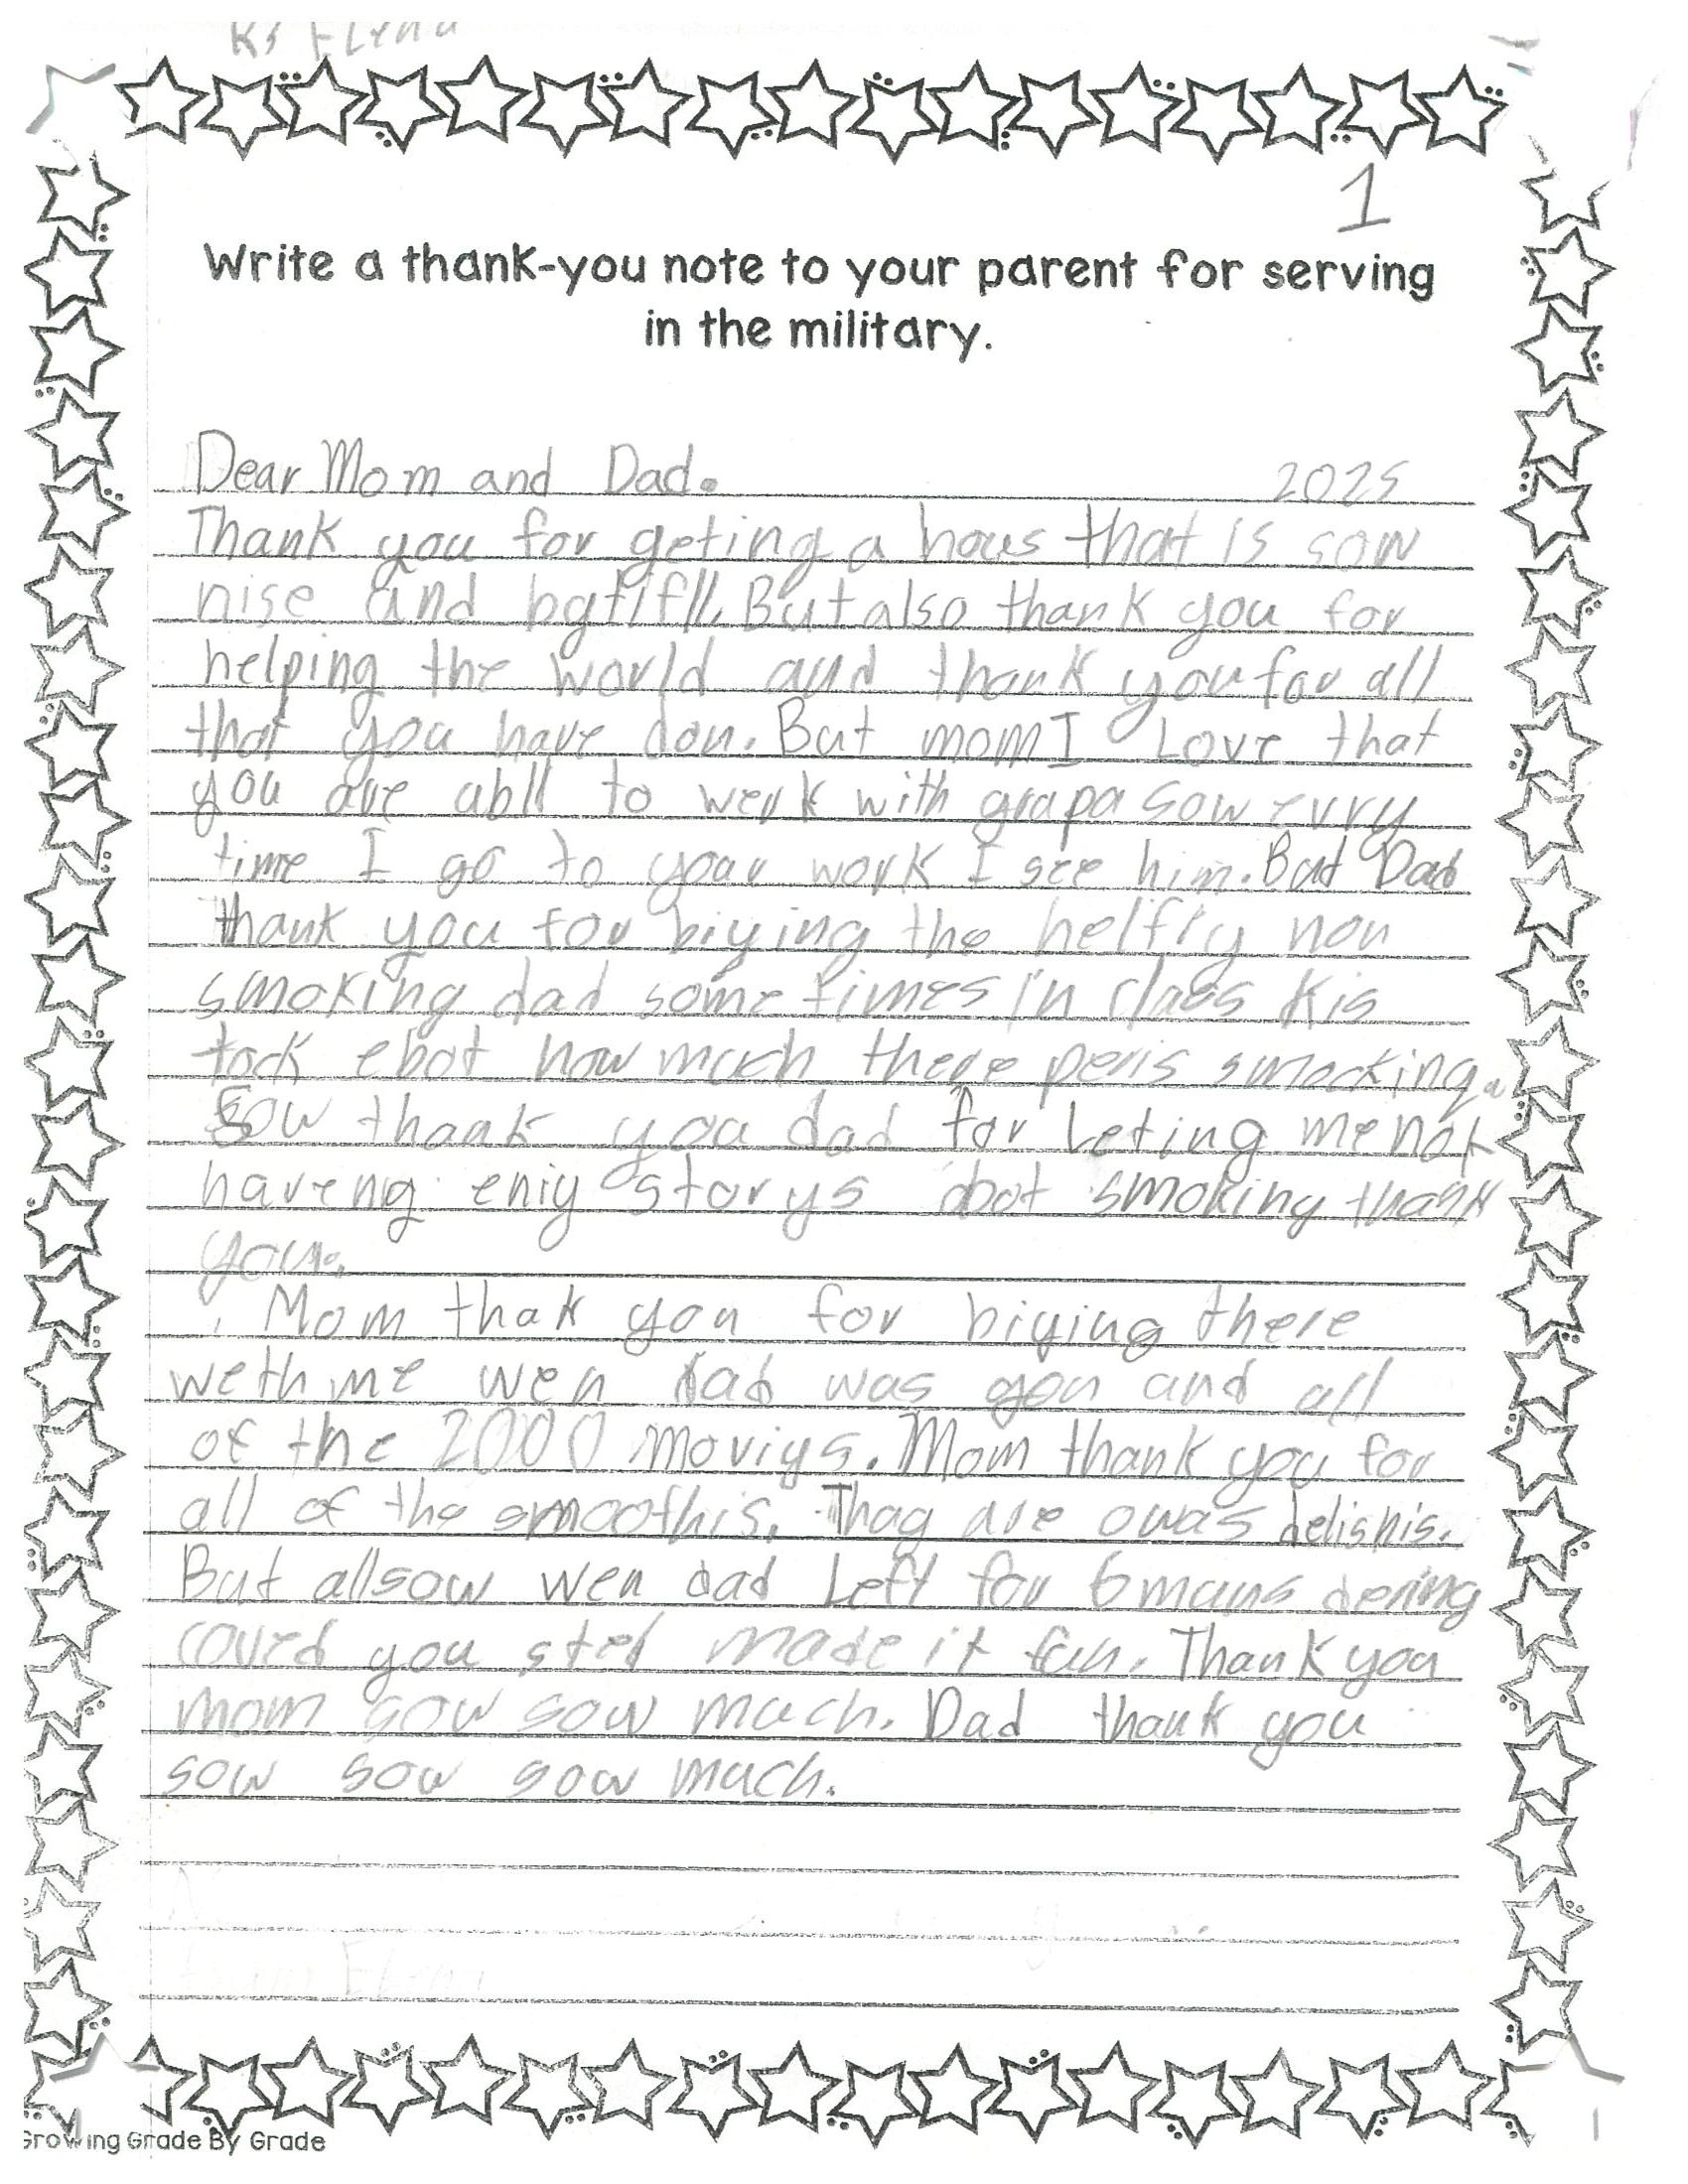 1
Write a thank-you note to your parent for serving
in the military.
Dear Mom and Dad. 2025
Thank you for geting a hous that is sow
nise and bgtifll. But also thank you for
helping the world and thank you for all
that you have don. But mom I Love that
you are abll to werk with grapa sow evry
time I go to your work I see him. But Dad
thank you for biying the helfiy non
smoking dad some times in class kis
tock ebot how much there peris smocking.
Sow thank you dad for Leting me not
haveng eniy storys abot smoking thank
you.
Mom thak you for biying there
weth me wen dad was gon and all
of the 2000 moviys. Mom thank you for
all of the smoothis. Thay are owas delishis.
But allsow wen dad Left for 6 mans dering
coved you stel made it fun. Thank you
mom sow sow much. Dad thank you
sow sow sow much.
Growing Grade By Grade